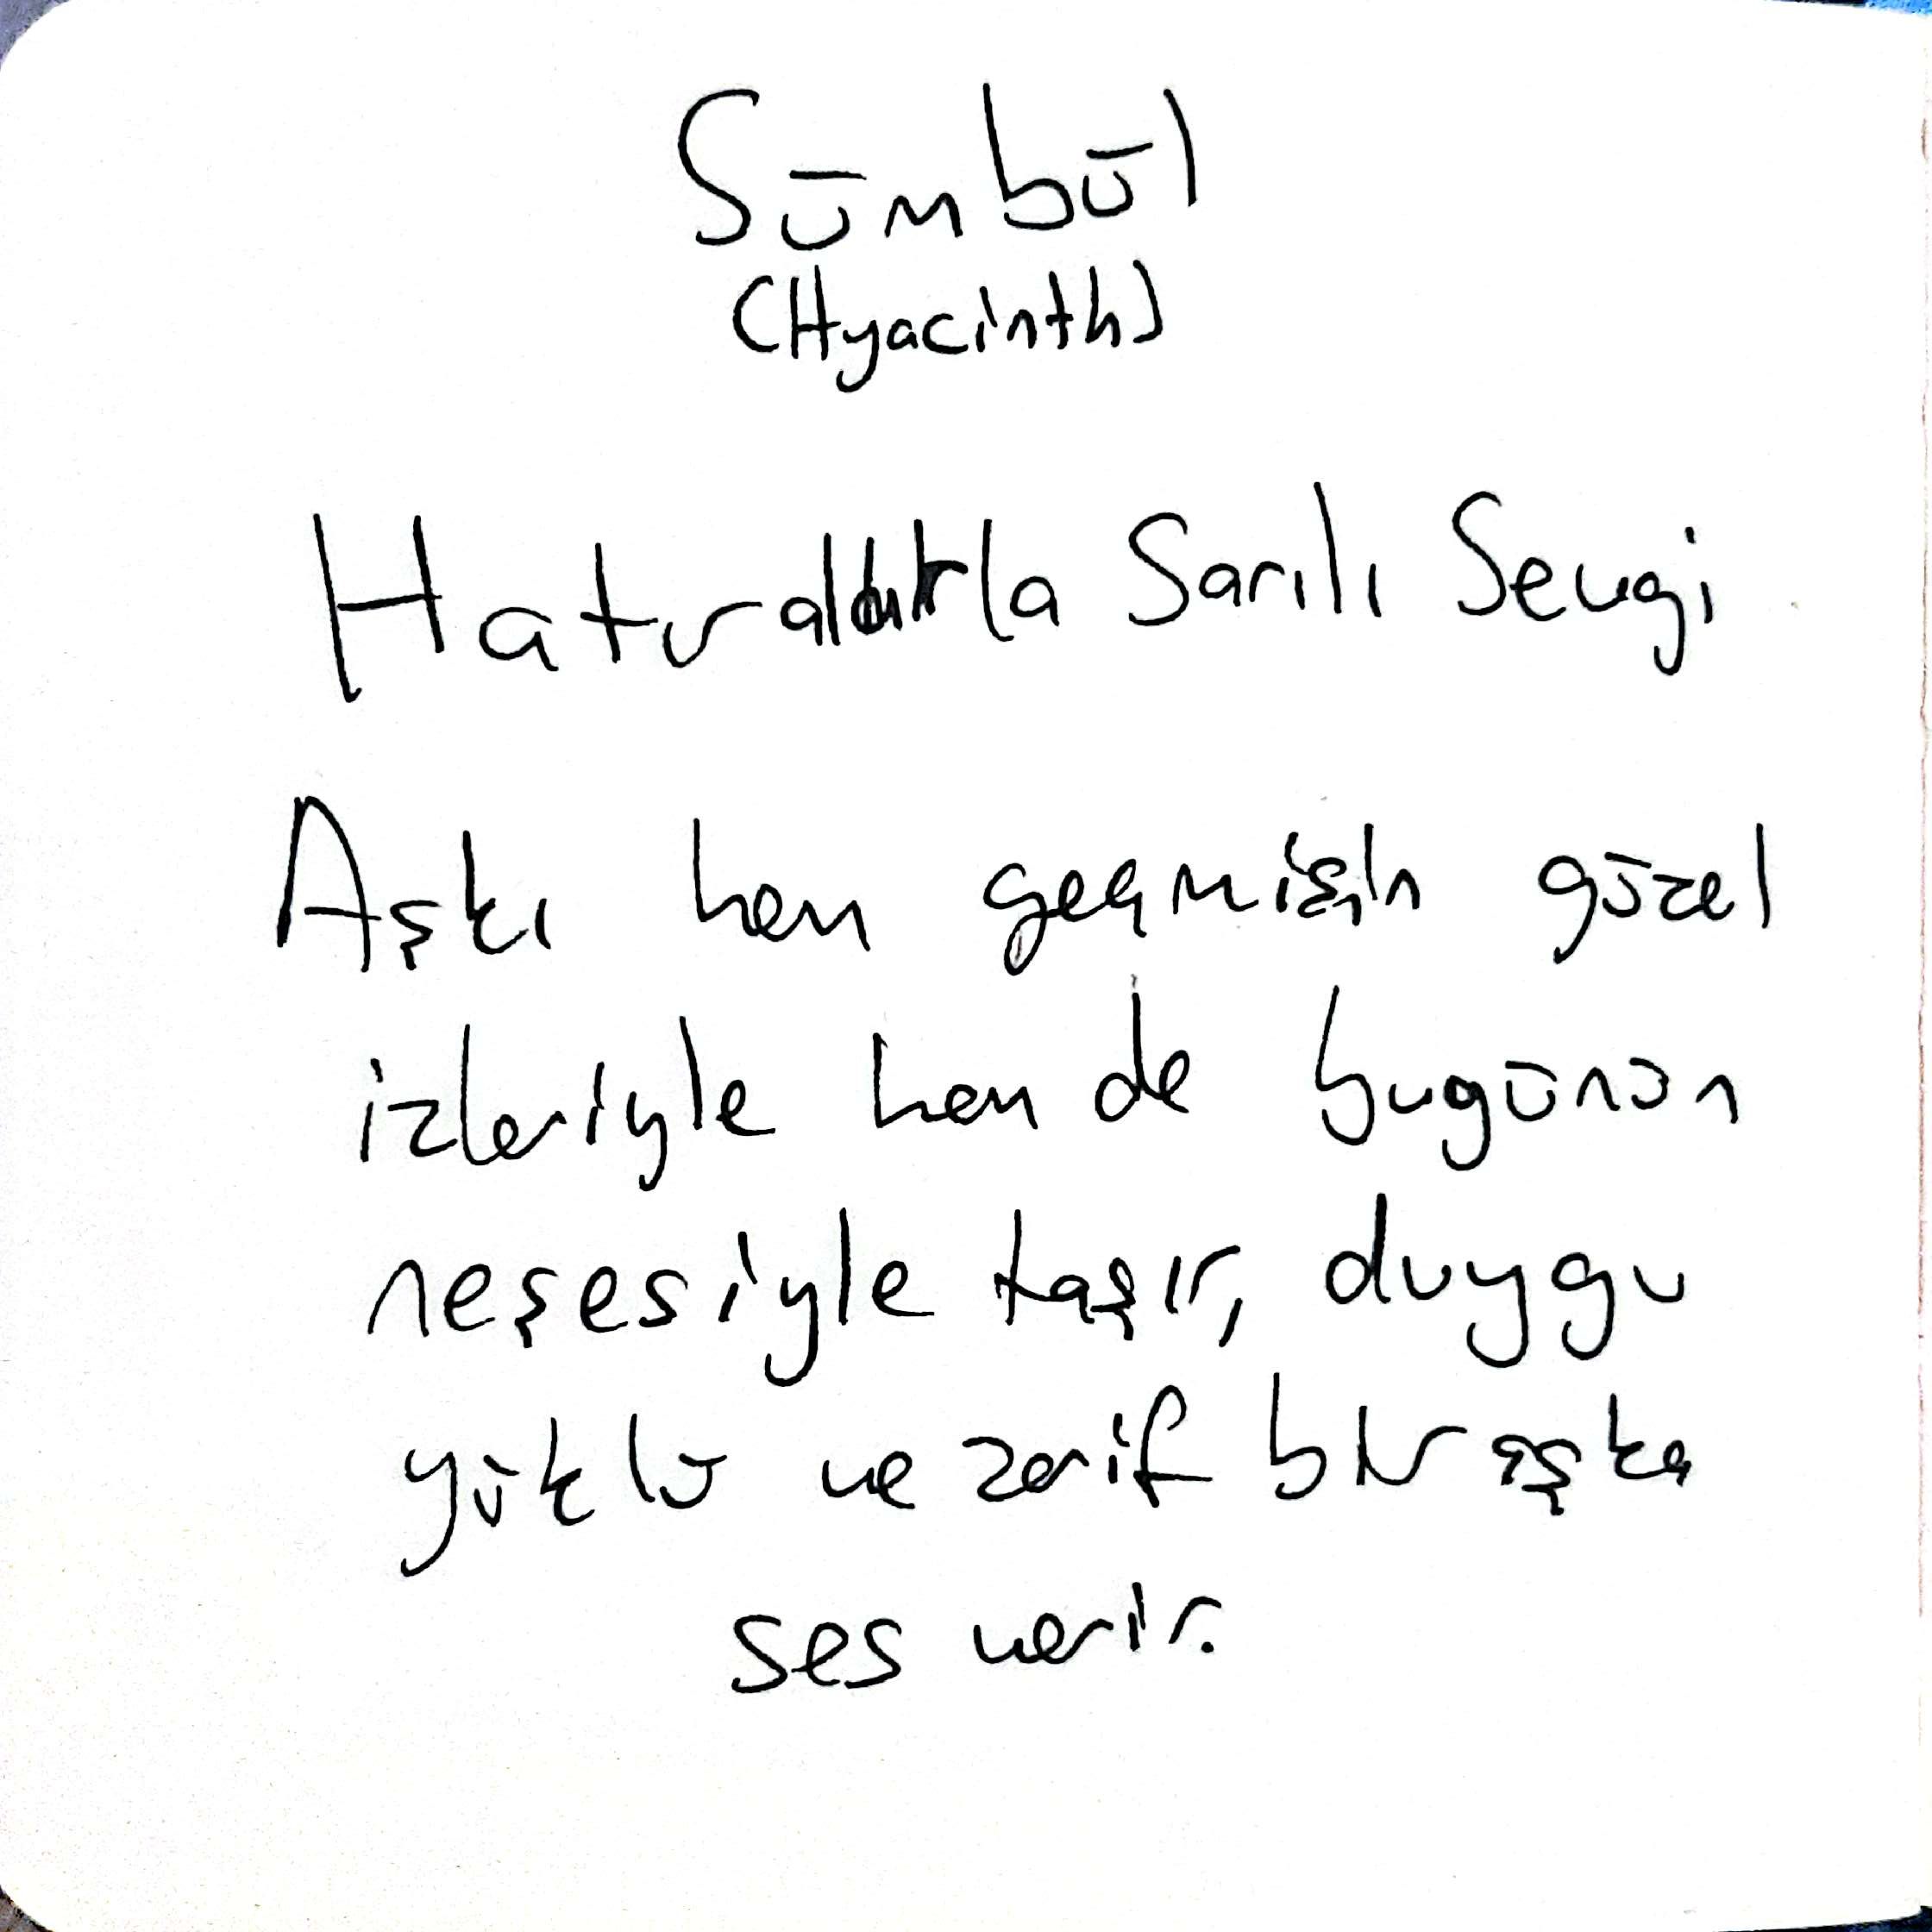 Sümbül
(Hyacinth)
Sarılı Sevgi
Aşkı hem geçmişin güzel
izleriyle hem de bugünün
neşesiyle taşır, duygu
yüklü ve zarif bir aşka
ses verir.